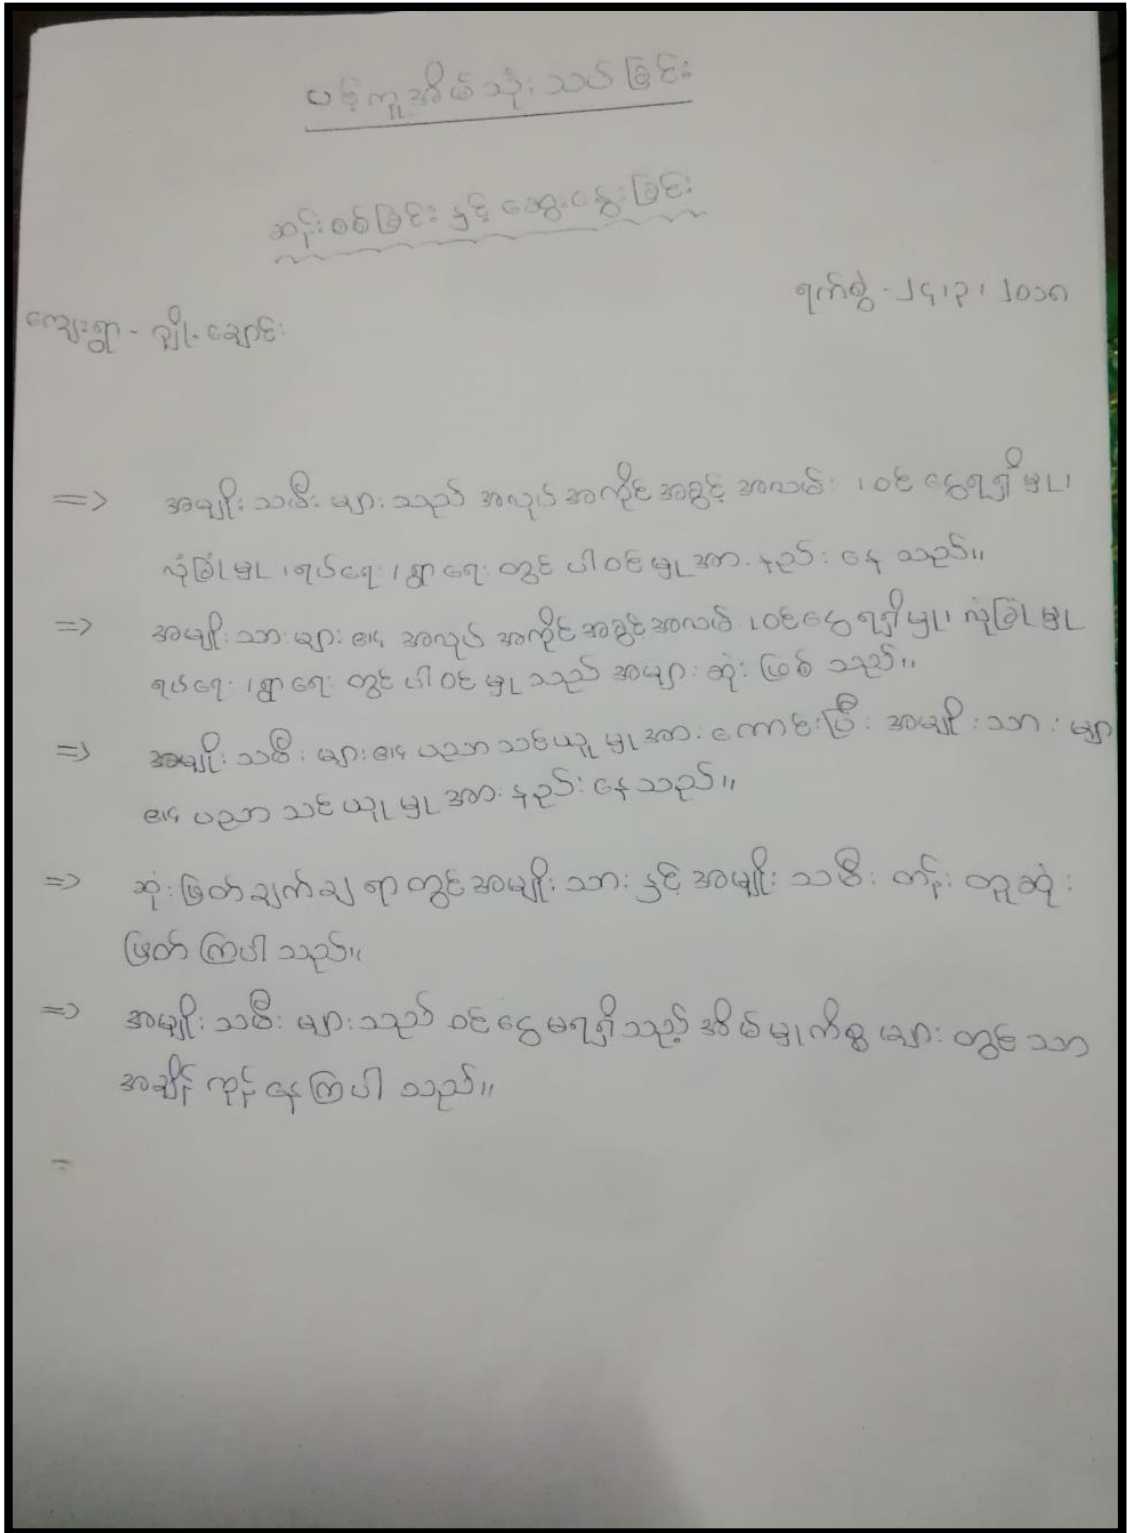 ပင့်ကူအိမ်သုံးသပ်ခြင်း
ဆန်းစစ်ခြင်းနှင့် ဆွေးနွေးခြင်း
ရက်စွဲ - ၂၄၊၃၊ ၂၀၁၈
ကျေးရွာ - ချောင်း
=> အမျိုးသမီးများသည် အလုပ်အကိုင်အခွင့်အလမ်း ၊ ဝင်ငွေရရှိမှု၊
လုံခြုံမှု ၊ရပ်ရေး ၊ရွာရေး တွင် ပါဝင်မှု အားနည်းနေသည်။
=> အမျိုးသားများ၏ အလုပ်အကိုင်အခွင့်အလမ် ၊ ဝင်ငွေရရှိမှု၊ လုံခြုံမှု
ရပ်ရေး ၊ရွာရေး တွင် ပါဝင်မှုသည် အများဆုံး ဖြစ်သည်။
=> အမျိုးသမီးများ၏ ပညာသင်ယူမှု အားကောင်းပြီး အမျိုးသားများ
၏ ပညာသင်ယူမှု အားနည်းနေသည်။
=> ဆုံးဖြတ်ချက်ချရာတွင် အမျိုးသားနှင့် အမျိုးသမီး တန်းတူဆုံး
ဖြတ်ကြပါသည်။
=> အမျိုးသမီးများသည် ဝင်ငွေမရရှိသည့် အိမ်မှုကိစ္စများတွင်သာ
အချိန်ကုန်နေကြပါသည်။